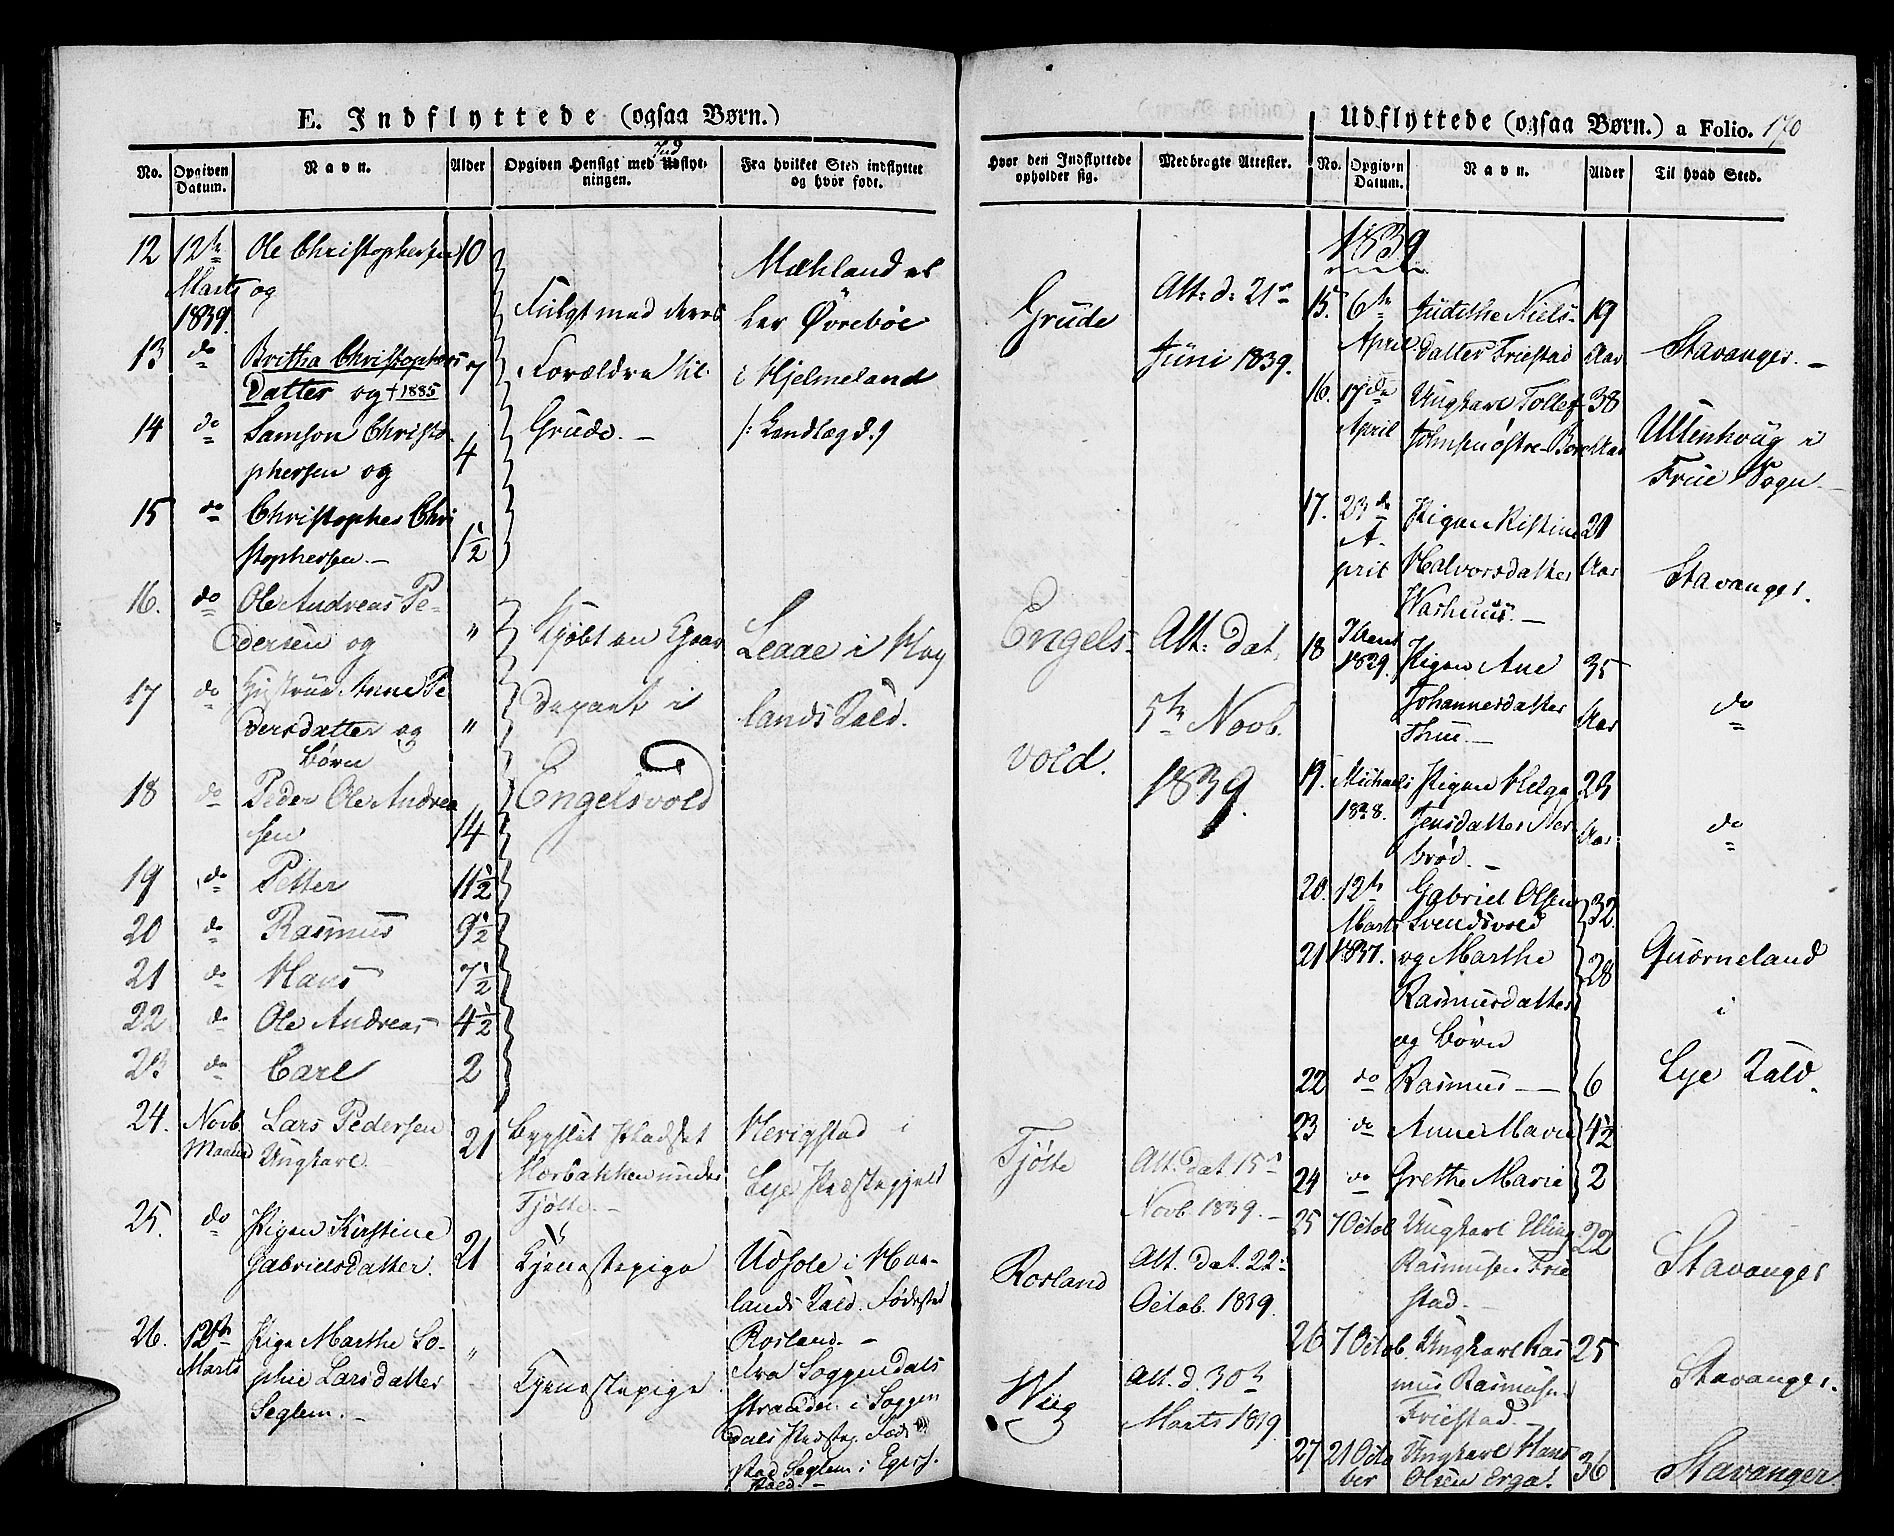 E. Indflyttede (ogsaa Børn.)
No. Opgiven Datum. Navn. Alder Opgiven Hensigt med Udflytningen. Ind Fra hvilket Sted indflyttet og hvor født.
12 12te Marts 1839. Ole Christophersen og 10
13 do Britha Christophers Datter og † 1885 7
14 do Samson Christophersen og 4
15 do Christopher Christophersen. 1½
Fulgt med deres Forældre til Grude. –
Mæhland el
ler Øvrebøe
i Hjelmeland
16. do Ole Andreas Pedersen og "
17 do Hustrue Anne Pedersdatter og Børn "
18 do Peder Ole Andreasen 14
19 do Petter 11½
20 do Rasmus 9½
21 do Hans 7½
22 do Ole Andreas 4½
23 do Carl 2
Kjøbt en Gaardepart i Engelsvold
Leaae i Høglands Præld.
24. Novb. Maaned Lars Pedersen Ungkarl 21 Bygslet Pladset Morbakken under Tjøtte. – Herigstad i Lye Præstegjeld
25. do Pigen Kirstine Gabrielsdatter. 21 Tjenestepige Udsole i Haalands Præld. Fødested Rosland. –
26. 12te Marts Pige Marthe Sophie Larsdatter Seglem. – " Tjenestepige. fra Soggendals stranden i Soggendals Præsteg. Fødested Seglem i Egers. Præld. –
Hvor den Indflyttede opholder sig. Medbragte Attester.
Grude Att: d: 21de Juni 1839.
Engelsvold. Att: dat. 5te Novb. 1839.
Tjøtte Att. dat 15de Novb. 1839. –
Rosland Att. dat. 22de Octob. 1839.
Wiig Att. d. 30te Marts 1839.
Udflyttede (ogsaa Børn.) a Folio. 170
No. Opgiven Datum. Navn. Alder Til hvad Sted.
1839
15. 6te April Judithe Nielsdatter Friestad 19 Aar Stavanger. –
16. 17de April Ungkarl Tollef Johnsen Østre-Bore 38 Aar Ullenhoug i Frue Sogn –
17. 23de April Pigen Kistine Halvorsdatter Warhuus. – 21 Aar Stavanger.
18 1839. Pigen Ane Johannesdatter Thuu. – 35 Aar do
19. Michaeli 1838. Pigen Helga Jensdatter Nerbrød. – 23 Aar do
20. 12te Marts 1837. Gabriel Olsen Svendsvold 32
21 og Marthe Rasmusdatter og Børn 28
Quærneland
i
Lye Præld.
22 do Rasmus – 6
23 do Anne Marie 4½
24 do Grethe Marie 2
25 7 Octob. Ungkarl Elling Rasmusen Friestad. – 22 Stavanger
26 7 Octob. Ungkarl Rasmus Rasmusen Friestad. – 25 Stavanger.
27 21 October Ungkarl Hans Olsen Erga. 36 Stavanger.